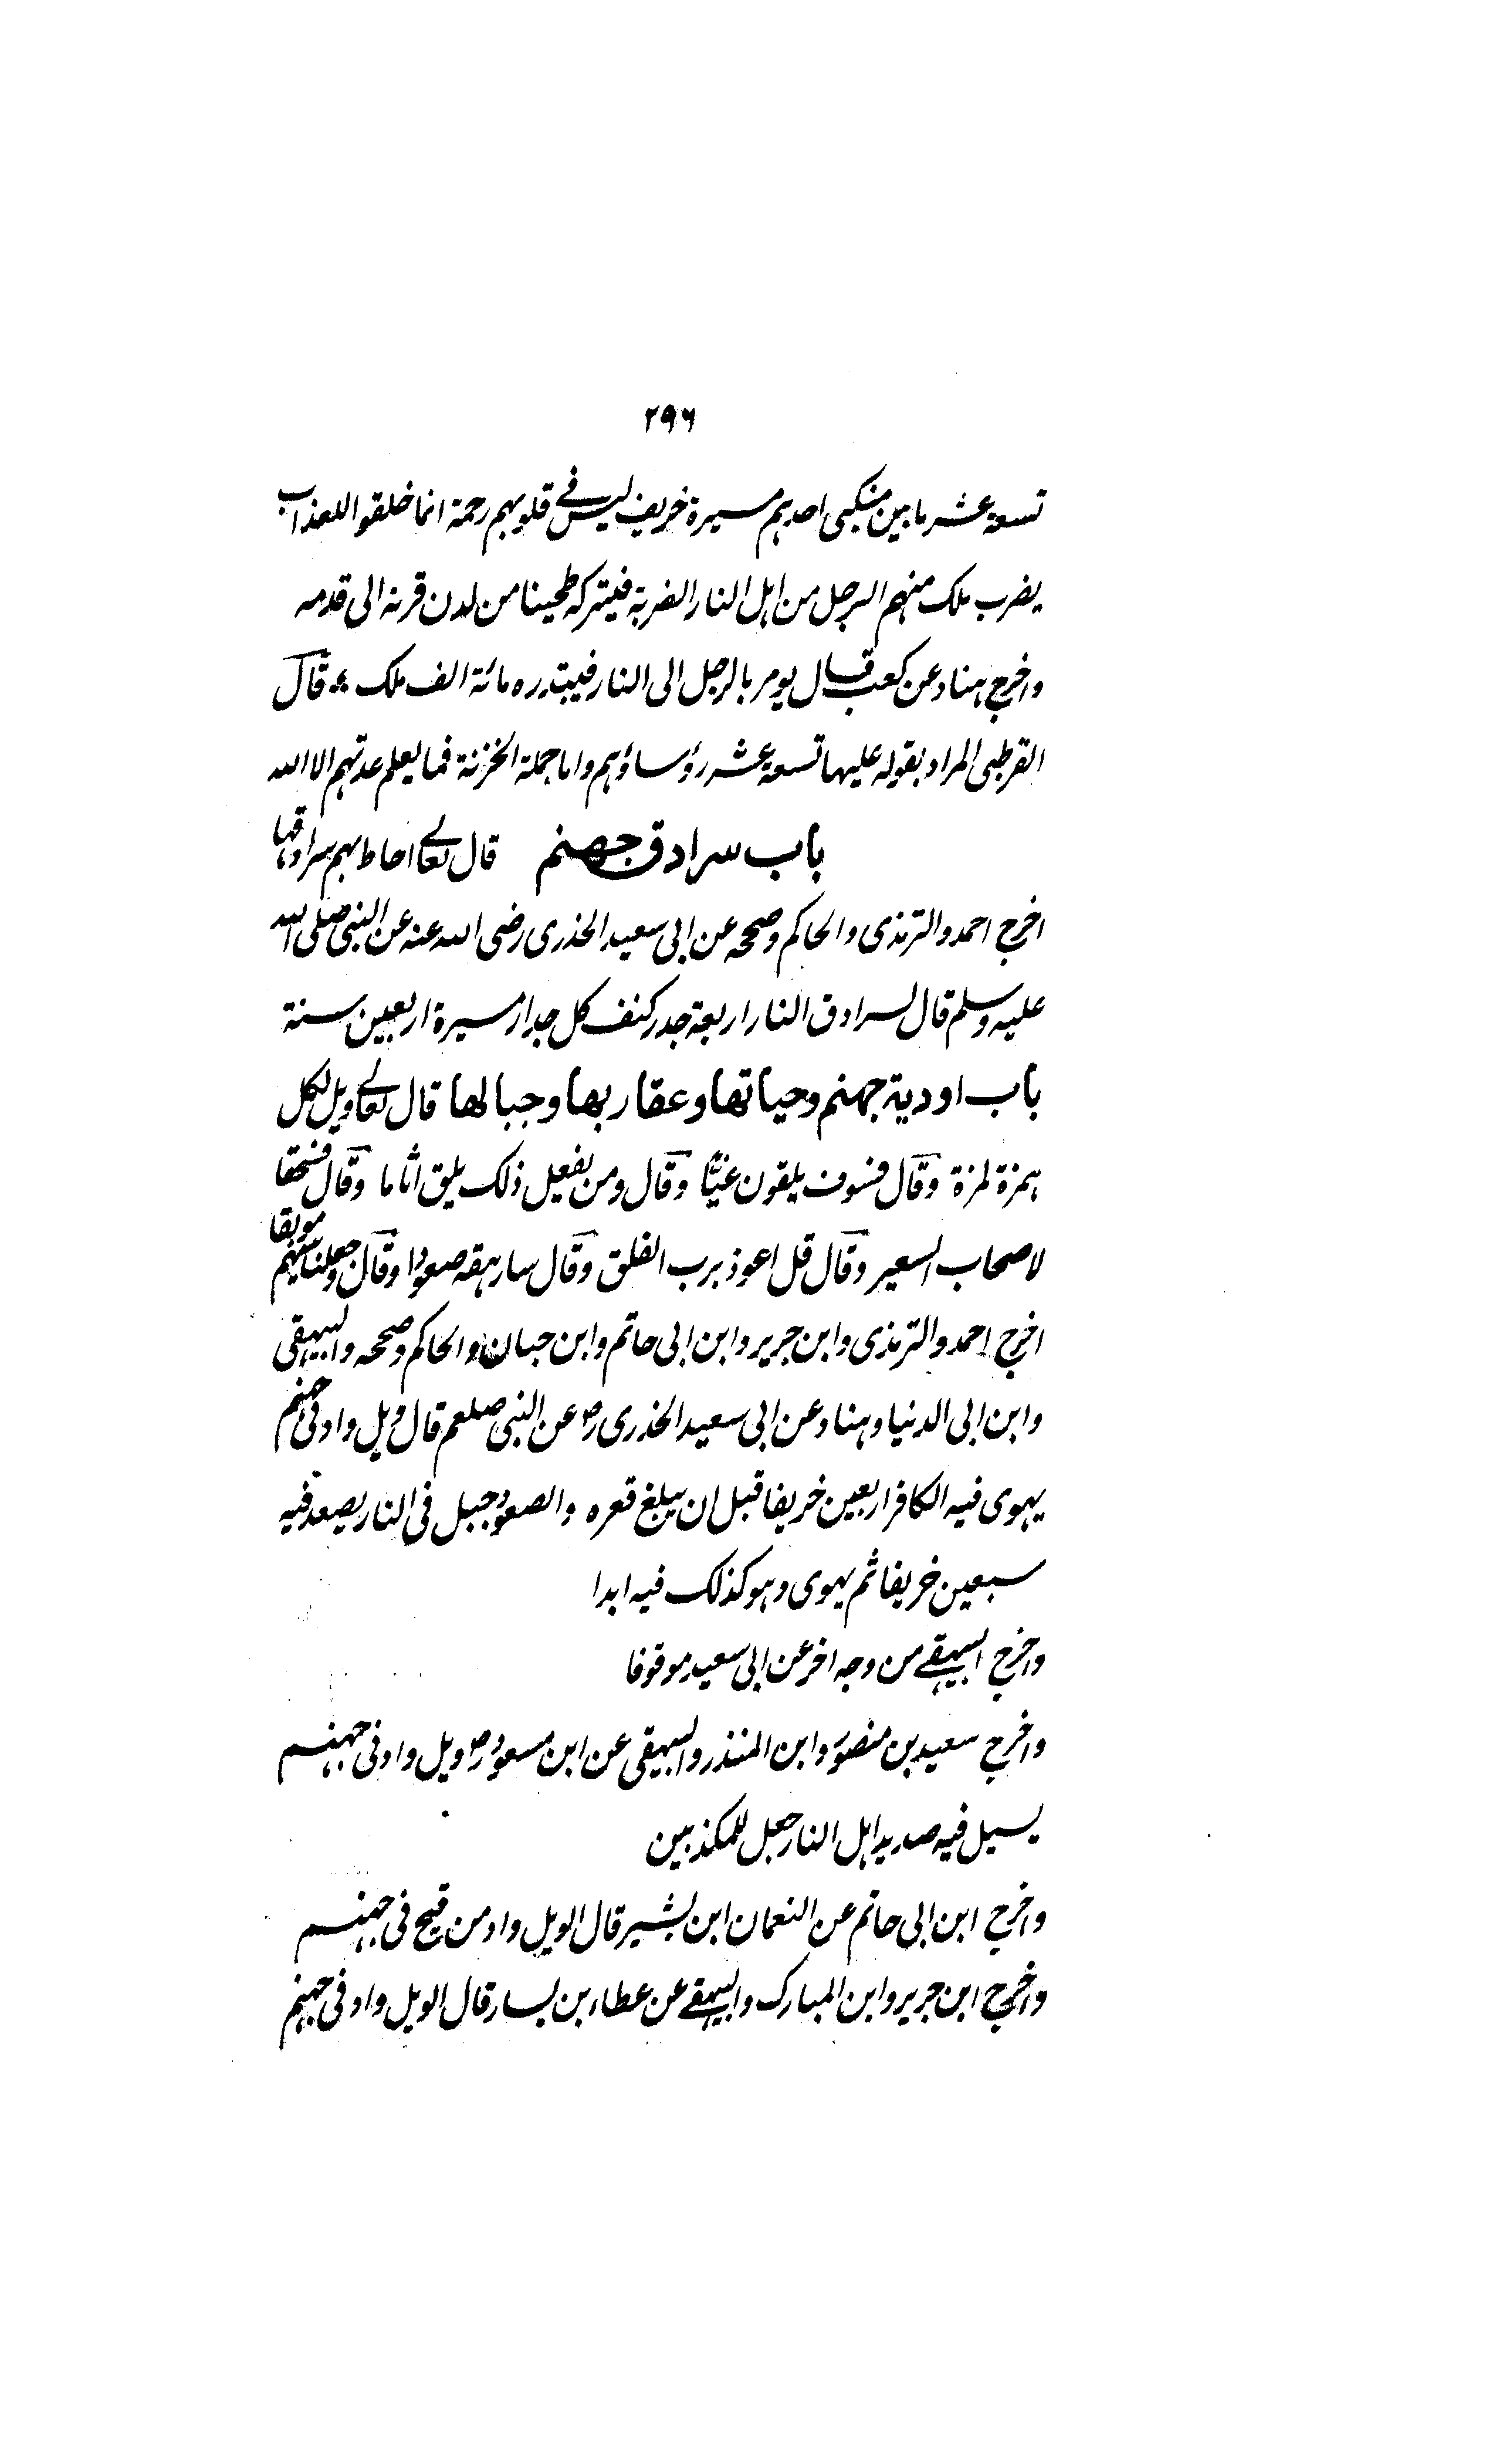 ٢٩٦
تسعة عشر ما بين منكبى احدهم مسيرة خريف ليس فى قلوبهم رحمة انما خلقوا للعذاب
يضرب ملك منهم الرجل من اهل النار الضربة فيتركه طحينا من لدن قرنه الى قدمه
واخرج هناد عن كعب قال يومر بالرجل الى النار فيبتدره مائة الف ملك ؞ قال
القرطبى المراد بقوله عليها تسعة عشر رؤساؤهم واما جملة الخزنة فما يعلم عدتهم الا الله
باب سرادق جهنم قال تعالى احاط بهم سرادقها
اخرج احمد والترمذى والحاكم وصححه عن ابى سعيد الخذرى رضى الله عنه عن النبى صلى الله
عليه وسلم قال لسرادق النار اربعة جدر كنف كل جدار مسيرة اربعين سنة
باب اودية جهنم وحياتها وعقاربها وجبالها قال تعالى ويل لكل
همزة لمزة وقال فسوف يلقون غيًّا وقال ومن يفعل ذلك يلق اثاما وقال فسحقا
لاصحاب السعير وقال قل اعوذ برب الفلق وقال سارهقه صعودا وقال وجعلنا بينهم موبقا
اخرج احمد والترمذى وابن جرير وابن ابى حاتم وابن حبان والحاكم وصححه والبيهقى
وابن ابى الدنيا وهناد عن ابى سعيد الخذرى رض عن النبى صلعم قال ويل واد فى جهنم
يهوى فيه الكافر اربعين خريفا قبل ان يبلغ قعره والصعود جبل فى النار يصعد فيه
سبعين خريفا ثم يهوى وهو كذلك فيه ابدا
واخرج البيهقى من وجه اخر عن ابى سعيد موقوفا
واخرج سعيد بن منصور وابن المنذر والبيهقى عن ابن مسعود رض ويل واد فى جهنم
يسيل فيه صديد اهل النار جعل للمكذبين
واخرج ابن ابى حاتم عن النعمان ابن بشير قال الويل واد من قيح فى جهنم
واخرج ابن جرير وابن المبارك والبيهقى عن عطاء بن يسار قال الويل واد فى جهنم